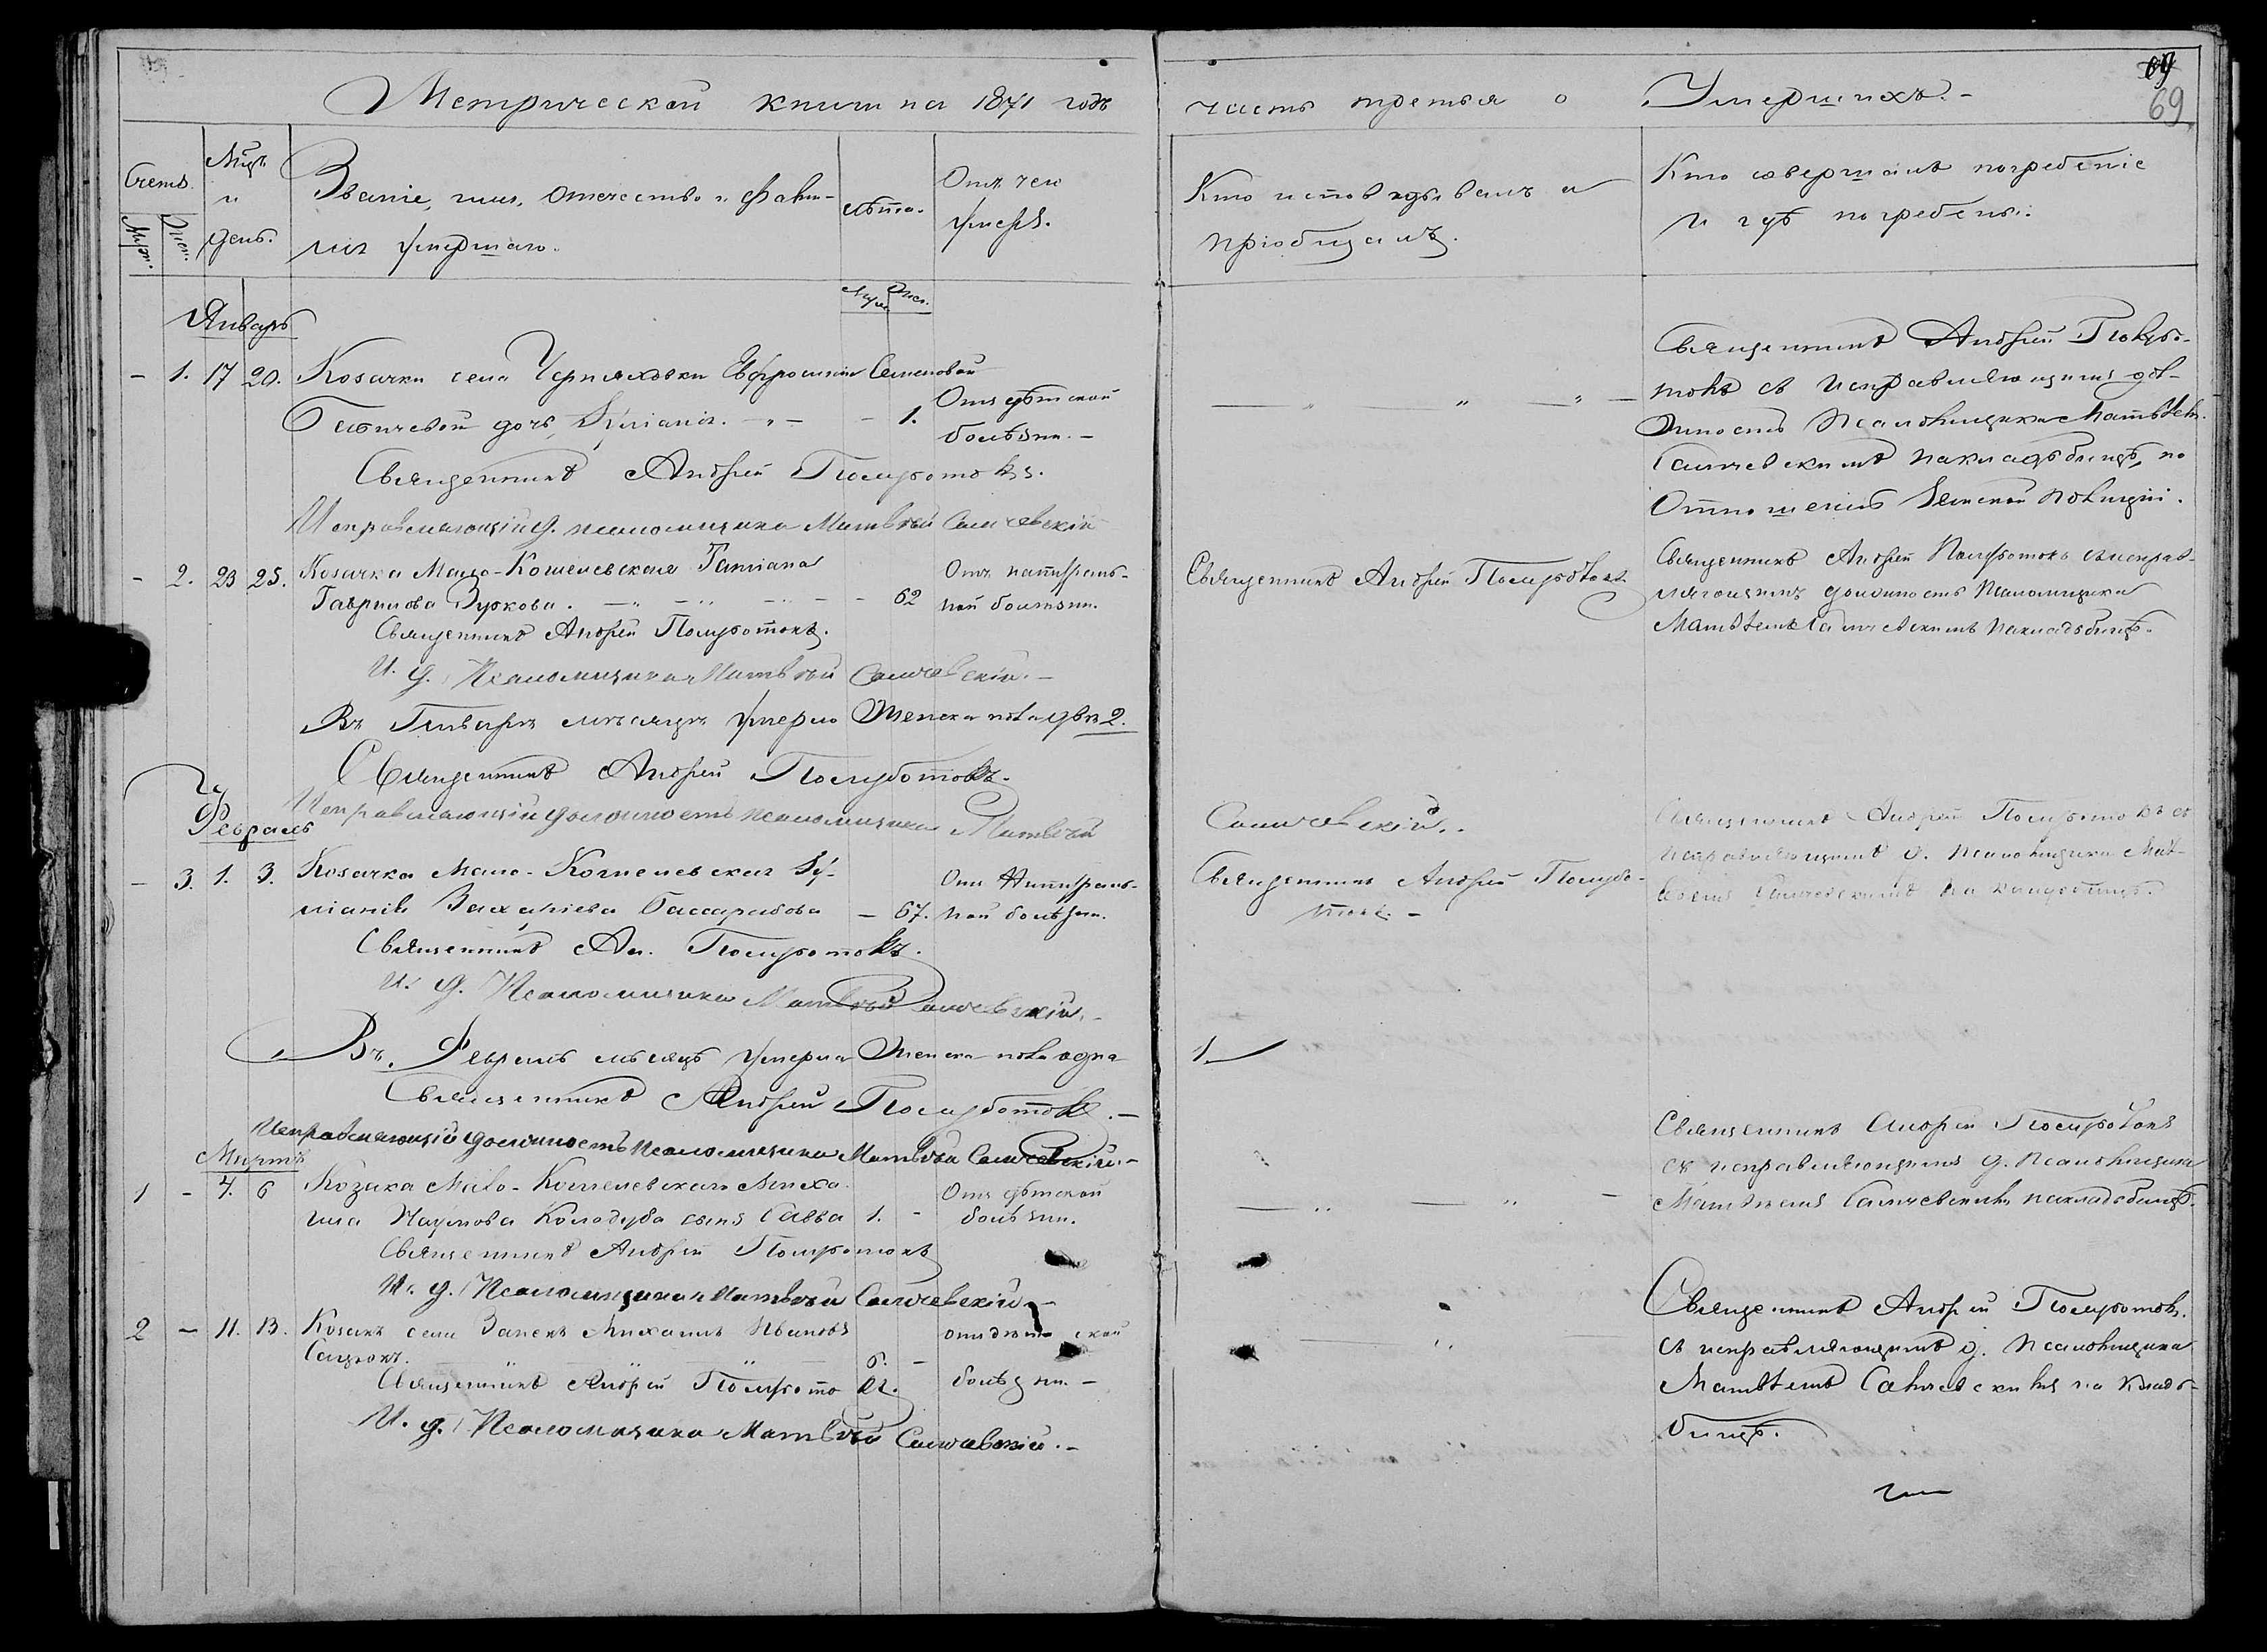 Метрической книги на 1871 годъ
часть третья о Умершихъ.-
69
69
Счетъ.
Муж.
Жен.
Мѣць
и
день.
Званіе, имя, отечество и фами-
лія умершаго.
Лѣта.
Муж.
Жен.
Отъ чего
умеръ.
Кто исповѣдывалъ и
пріобщалъ.
Кто совершалъ погребеніе
и гдѣ погребены.
Январь
- 1. 17 20. Козачки села Черняховки Евфросиніи Семеновой
дочь Іуліанія. - 1.
Отъ дѣтской
болѣзни.-
Священникъ Андрей Полуботокъ.
Исправляющій д. псаломщика Матвѣй Саличевскій
Священникъ Андрей Полубо-
токъ съ исправляющимъ дол-
жность Псаломщика Матвѣем
Саличевскимъ на кладбищѣ, по
Отношенію Земской полиціи.
- 2. 23 25. Козачка Мало-Кошелевская Татіана
Гаврилова Зуркова. - 62
Отъ натураль-
ной болѣзни.
Священникъ Андрей Полуботокъ.
И. д. Псаломщика Матвѣй Саличевскій.-
Священникъ Андрей Полуботокъ
Священникъ Андрей Полуботокъ съ исправ-
ляющимъ должность Псаломщика
Матвѣемъ Саличевскимъ на кладбищѣ.
Въ Январѣ мѣсяцѣ умерло Женска пола двѣ 2.
Священникъ Андрей Полуботокъ.
Исправляющій должность псаломщика Матвѣй
Саличевскій.
Февраль
- 3. 1. 3. Козачка Мало-Кошелевская Іу-
ліанія Захаріева Бассарабова - 67.
Отъ Натураль-
ной болѣзни.
Священникъ Ан. Полуботокъ.
И. д. Псаломщика Матвѣй Саличевскій.-
Священникъ Андрей Полубо-
токъ.-
Священникъ Андрей Полуботокъ съ
исправляющимъ д. Псаломщика Мат-
вѣемъ Саличевскимъ на кладбищѣ.
Въ Февралѣ мѣсяцѣ умерла Женска пола одна
1.
Священникъ Андрей Полуботокъ.-
Исправляющій должность Псаломщика Матвѣй Саличевскій.-
Мартъ
1 - 4. 6 Козака Мало-Кошелевскаго Миха-
ила Наумова Колодуба сынъ Савва 1. -
Отъ дѣтской
болѣзни.
Священникъ Андрей Полуботокъ
И. д. Псаломщика Матвѣй Саличевскій.-
Священникъ Андрей Полуботокъ
съ исправляющимъ д. Псаломщика
Матвѣемъ Саличевскимъ на кладбищѣ.
2 - 11. 13. Козакъ села Михаилъ Ивановъ
6. -
отъ дѣтской
болѣзни.-
Священникъ Андрей Полуботокъ.
И. д. Псаломщика Матвѣй Саличевскій.-
Священникъ Андрей Полуботокъ.
съ исправляющимъ д. Псаломщика
Матвѣемъ Саличевскимъ на клад-
бищѣ.